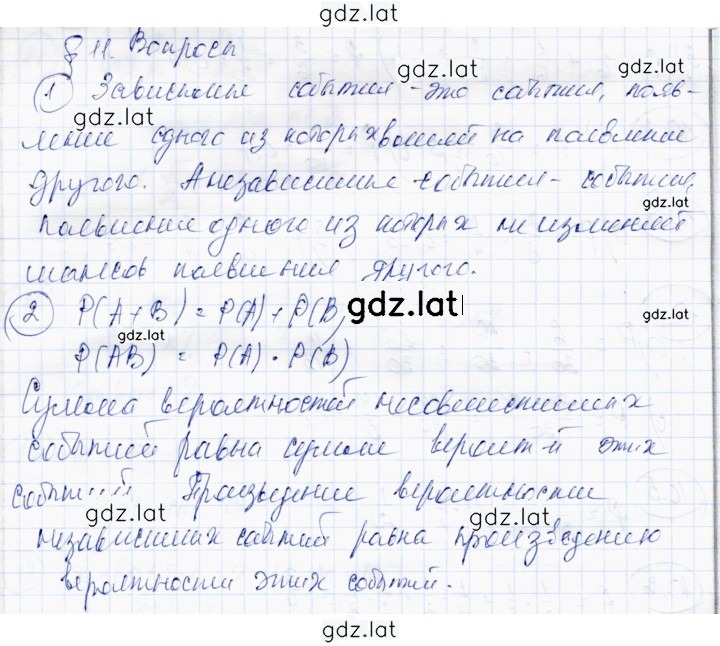 gdz.lat
§ 11. Вопросы
gdz.lat
1 Зависимые события - это события, появ-
gdz.lat gdz.lat
ление одного из которых влияет на появление
другого. А независимые события - события,
gdz.lat
появление одного из которых не изменяет
шансов появления другого.
2 P(A+B) = P(A) + P(B) gdz.lat
gdz.lat
P(AB) = P(A) · P(B)
Сумма вероятностей несовместимых
событий равна сумме вероят-й этих
событий Произведение вероятности
gdz.lat gdz.lat
независимых событий равна произведению
вероятности этих событий.
gdz.lat